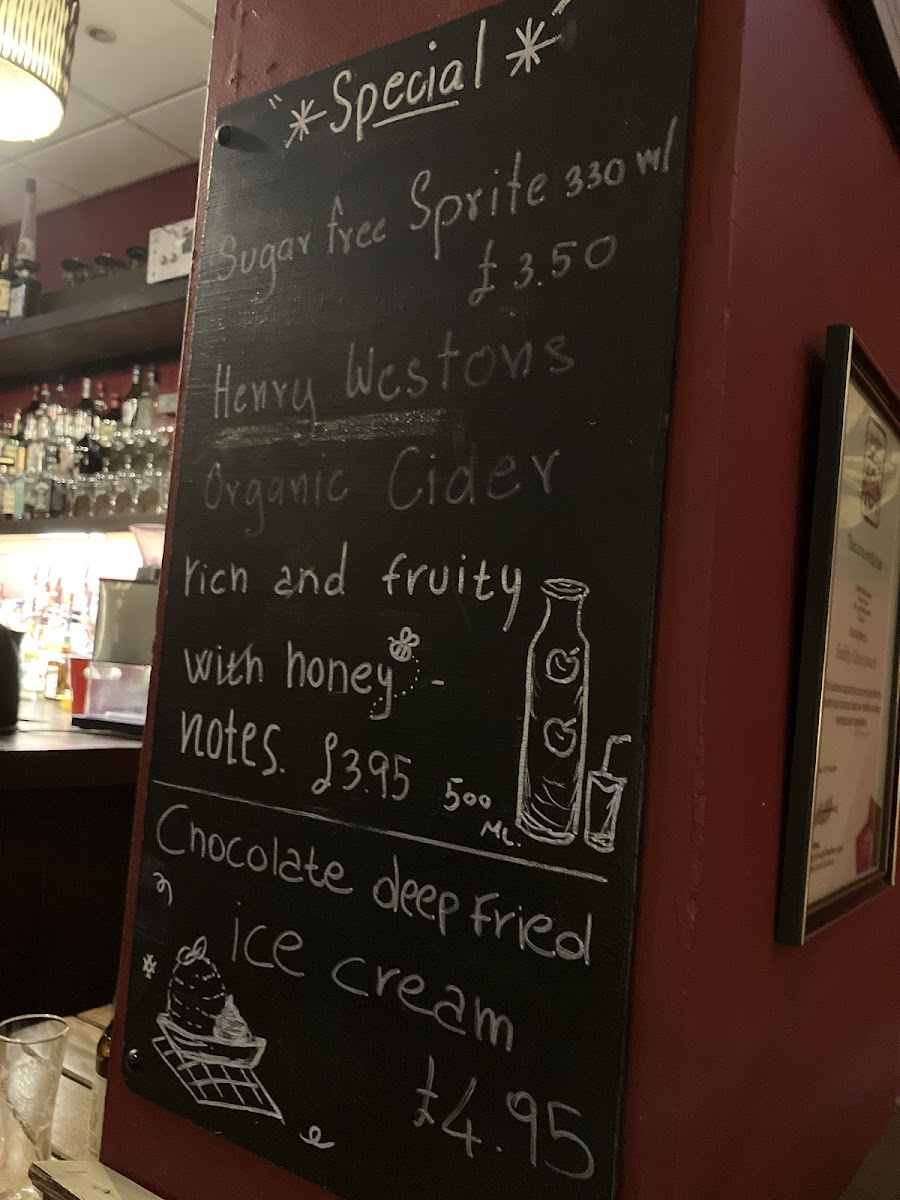 Special
Sugar free Sprite 330 ml
£3.50
Henry Westons
Organic Cider
rich and fruity
with honey -
notes. £3.95 500
ML.
Chocolate deep Fried
ice cream
£4.95